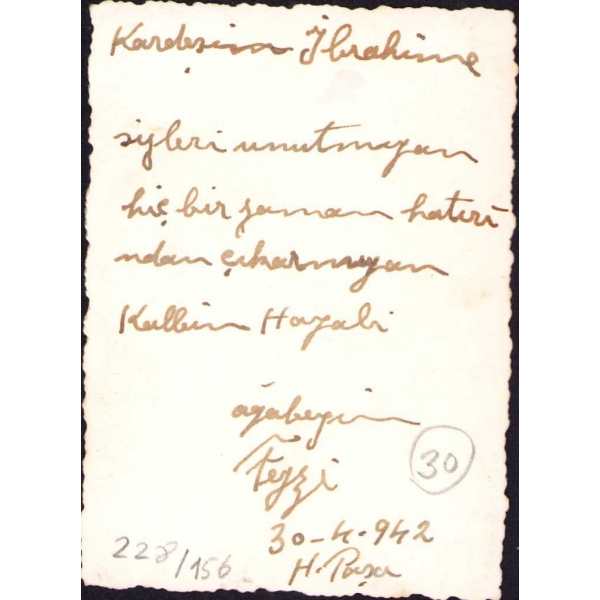 Kardeşim İbrahime
sizleri unutmıyan
hiç bir zaman hatırı
ndan çıkarmıyan
Kalbin Hayali
ağabeyin
Feyzi
30
30-4-942
H. Paşa
228/156